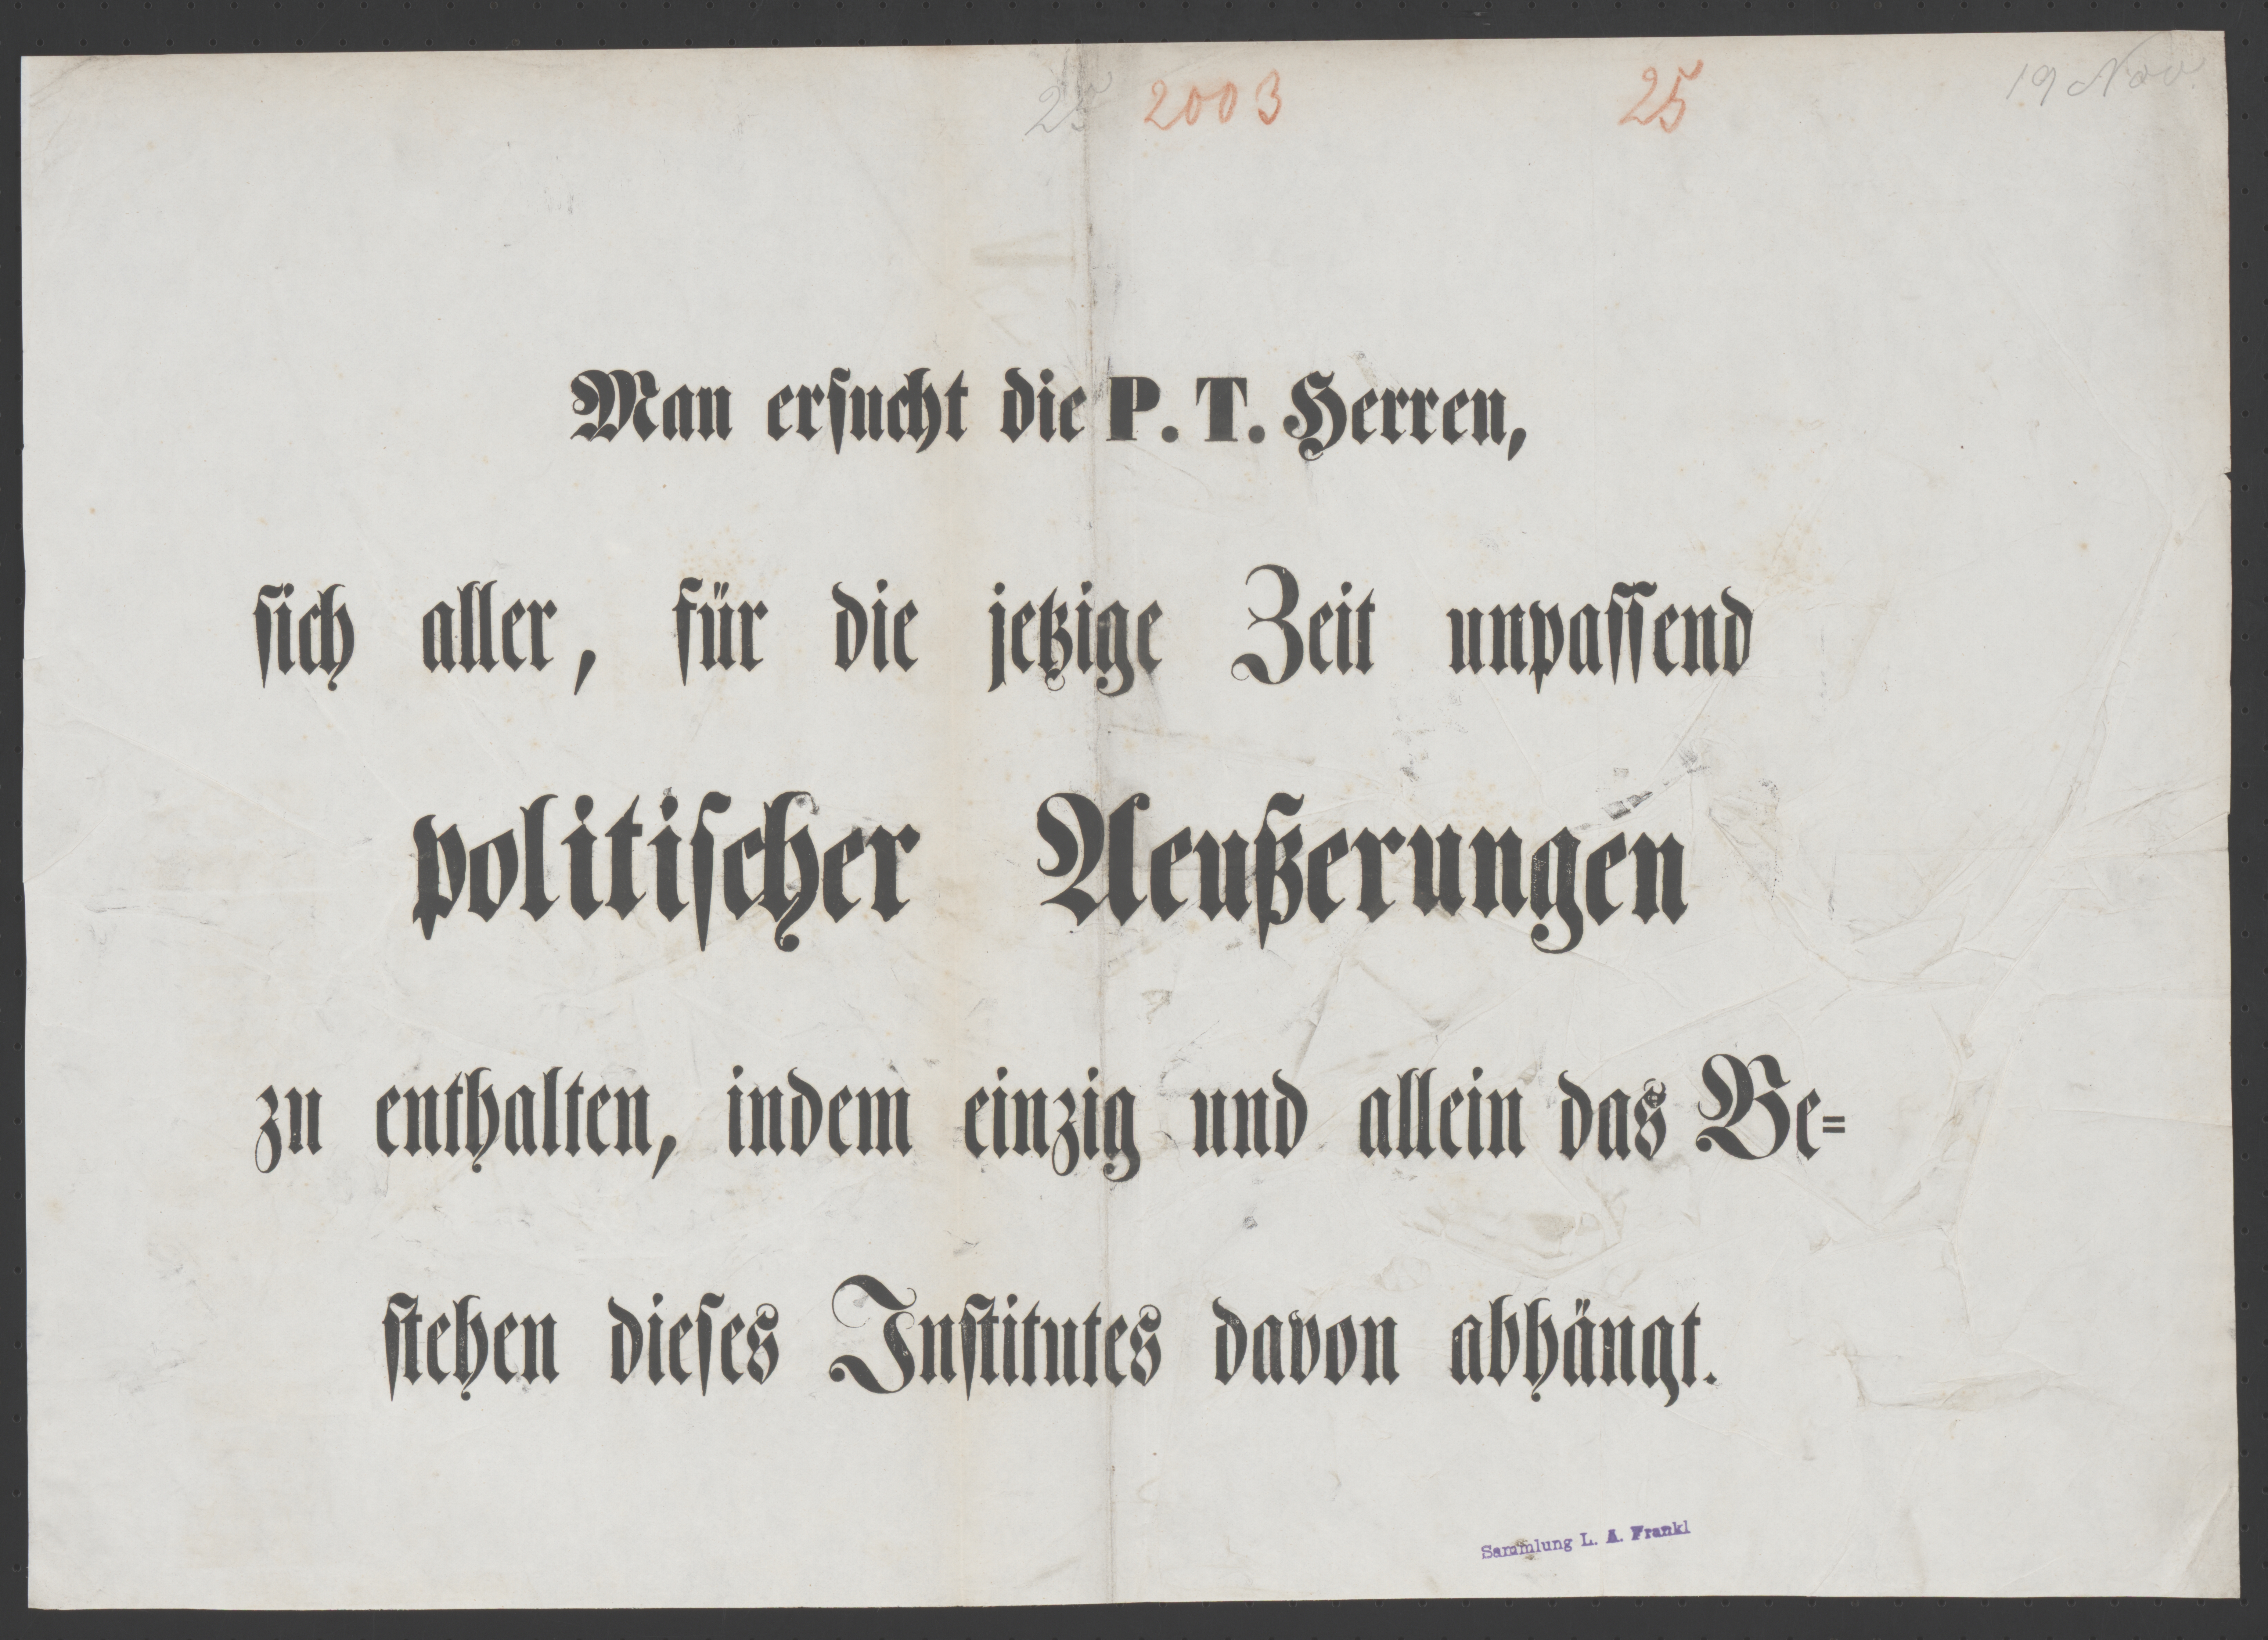 25 2003 25 19 Nov.
Man ersucht die P. T. Herren,
sich aller, für die jetzige Zeit unpassend
politischer Aeußerungen
zu enthalten, indem einzig und allein das Be=
stehen dieses Institutes davon abhängt.
Sammlung L. A. Frankl